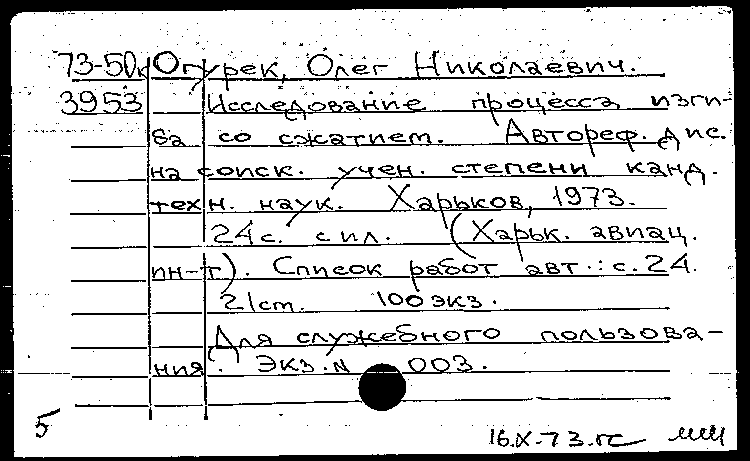 73-50к Огурек, Олег Николаевич.
3953 Исследование процесса изги-
ба со сжатием. Автореф. дис.
на соиск. учен. степени канд.
техн. наук. Харьков, 1973.
24с. с ил. (Харьк. авиац.
ин-т). Список работ авт.: с.24.
21ст. 100экз.
Для служебного пользова-
ния. Экз. N 003.
5
16.X-73.